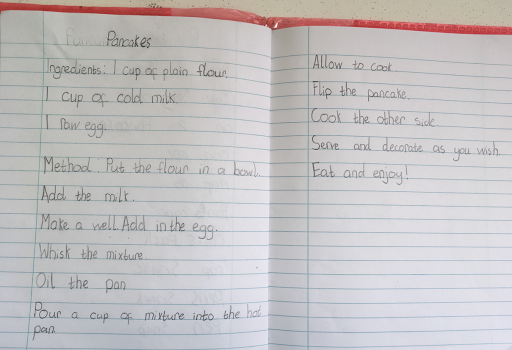 Pancakes
Ingredients: 1 cup of plain flour.
1 cup of cold milk.
1 raw egg.
Method: Put the flour in a bowl.
Add the milk.
Make a well. Add in the egg.
Whisk the mixture
Oil the pan
Pour a cup of mixture into the hot
pan
Allow to cook
Flip the pancake.
Cook the other side.
Serve and decorate as you wish.
Eat and enjoy!